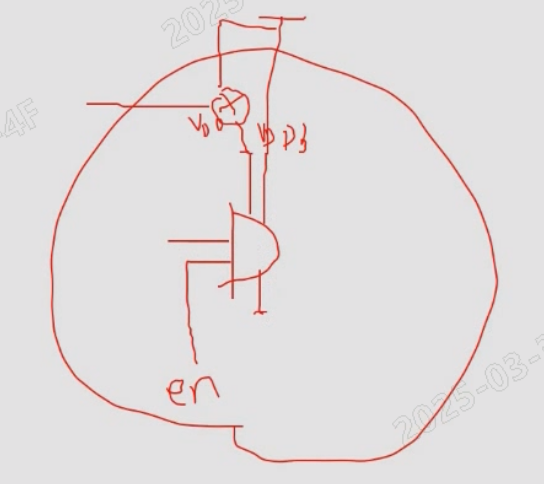 2025
4F
VDD
VDDB
en
2025-03-